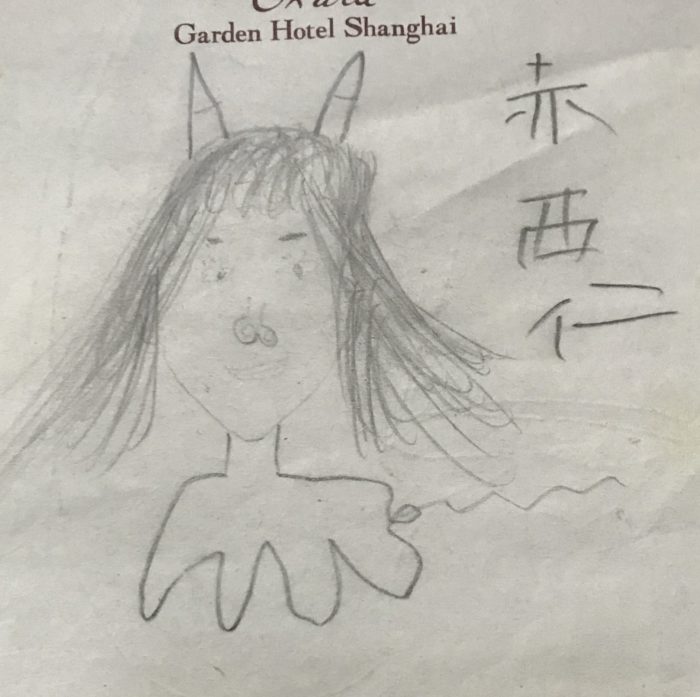 Garden Hotel Shanghai
赤
西
仁